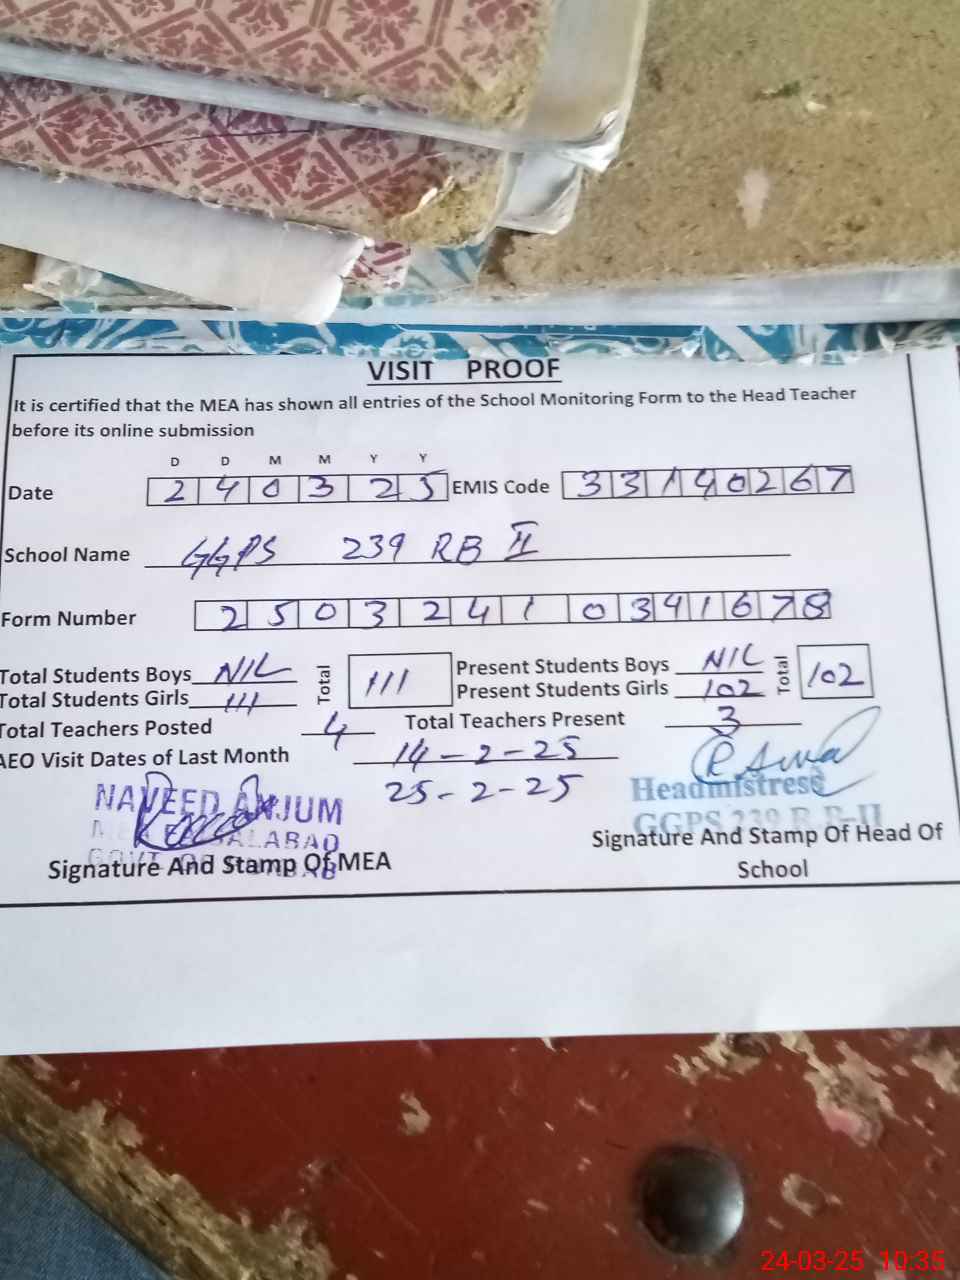 VISIT PROOF
It is certified that the MEA has shown all entries of the School Monitoring Form to the Head Teacher
before its online submission
D D M M Y Y
Date 2 4 0 3 2 5 EMIS Code 3 3 1 4 0 2 6 7
School Name GGPS 239 RB II
Form Number 2 5 0 3 2 4 1 0 3 4 1 6 7 8
Total Students Boys NIL Total 111 Present Students Boys NIL Total 102
Total Students Girls 111 Present Students Girls 102
Total Teachers Posted 4 Total Teachers Present 3
AEO Visit Dates of Last Month 14-2-25
25-2-25
NAVEED ANJUM
Headmistress
GGPS 239 R.B-II
Signature And Stamp Of MEA
Signature And Stamp Of Head Of
School
24-03-25 10:35